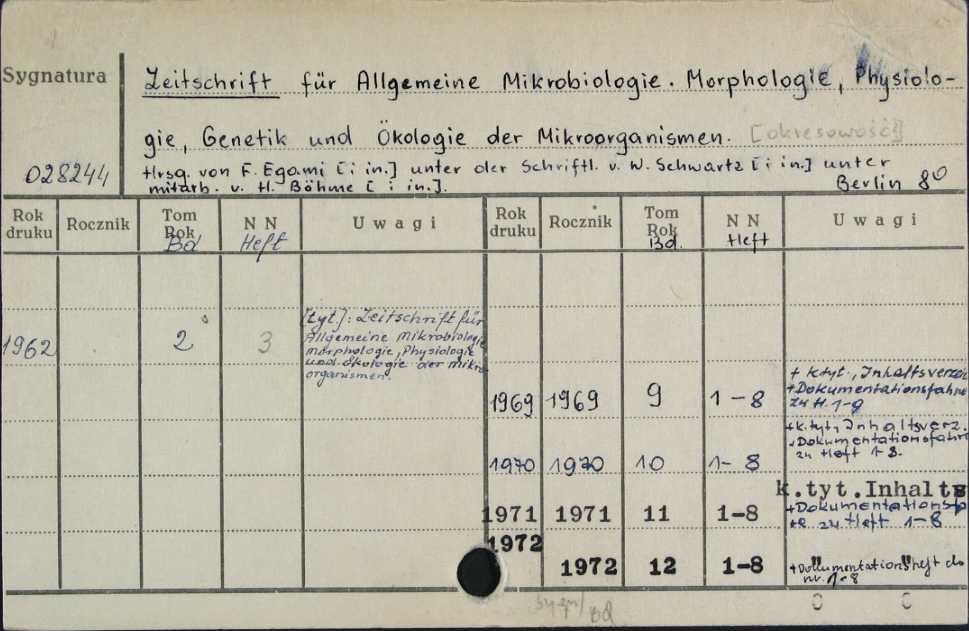 Sygnatura
Zeitschrift für Allgemeine Mikrobiologie. Morphologie, Physiolo-
gie, Genetik und Ökologie der Mikroorganismen. [okresowość]
028244
Hrsg. von F. Egami [i in.] unter der Schriftl. v. W. Schwartz [i in.] unter
mitarb. v. H. Böhme [i in.].
Berlin 8°
Rok druku Rocznik Tom Rok Bd N N Heft Uwagi Rok druku Rocznik Tom Rok Bd. N N Heft Uwagi
1962 2 3 [tyt]: Zeitschrift für
Allgemeine Mikrobiologie
morphologie, Physiologie
und Ökologie der mikro-
organismen.
1969 1969 9 1-8 + k.tyt., Inhaltsverzei
+ Dokumentationsfahne
zu H. 1-9
1970 1970 10 1-8 + k.tyt, Inhaltsverz.
+ Dokumentationsfahn
zu Heft 1-8.
1971 1971 11 1-8 k.tyt. Inhalts
+ Dokumentations
zu Heft 1-8
1972
1972 12 1-8 " "
+ Dokumentationsheft do
nr. 1-8